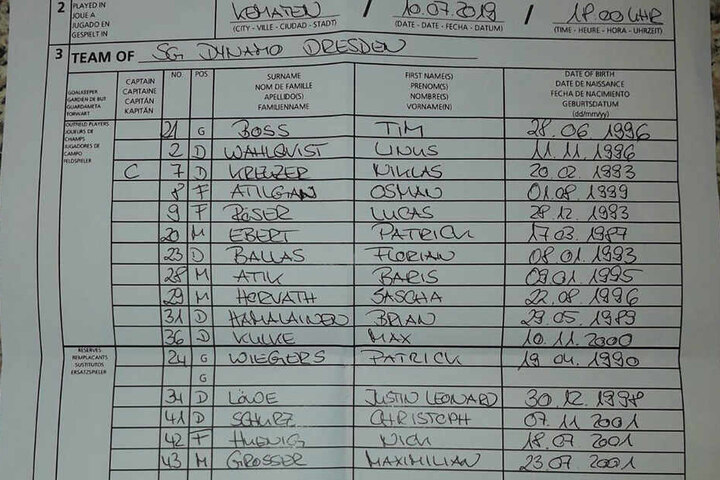 2 PLAYED IN KEMATEN / 10.07.2019 / 18.00 UHR
JOUE A
JUGADO EN
GESPIELT IN
(CITY - VILLE - CIUDAD - STADT) (DATE - DATE - FECHA - DATUM) (TIME - HEURE - HORA - UHRZEIT)
3 TEAM OF SG DYNAMO DRESDEN
GOALKEEPER
GARDIEN DE BUT
GUARDAMETA
TORWART
CAPTAIN
CAPITAINE
CAPITÁN
KAPITÄN
NO. POS
SURNAME
NOM DE FAMILLE
APELLIDO(S)
FAMILIENNAME
FIRST NAME(S)
PRENOM(S)
NOMBRE(S)
VORNAME(N)
DATE OF BIRTH
DATE DE NAISSANCE
FECHA DE NACIMIENTO
GEBURTSDATUM
(dd/mm/yy)
21 G BOSS TIM 28.06.1996
OUTFIELD PLAYERS
JOUEURS DE CHAMPS
JUGADORES DE CAMPO
FELDSPIELER
2 D WAHLQVIST LINUS 11.11.1996
C 7 D KREUZER NIKLAS 20.02.1993
8 F ATILGAN OSMAN 01.08.1999
9 F RÖSER LUCAS 28.12.1993
20 M EBERT PATRICK 17.03.1987
23 D BALLAS FLORIAN 08.01.1993
28 M ATIK BARIS 09.01.1995
29 M HORVATH SASCHA 22.08.1996
31 D HAMALAINEN BRIAN 29.05.1989
36 D KULKE MAX 10.11.2000
RESERVES
REMPLACANTS
SUSTITUTOS
ERSATZSPIELER
24 G WIEGERS PATRICK 19.04.1990
G
34 D LÖWE JUSTIN LEONARD 30.12.1998
41 D SCHURZ CHRISTOPH 07.11.2001
42 F HUENIG NICK 18.07.2001
43 M GROSSER MAXIMILIAN 23.07.2001